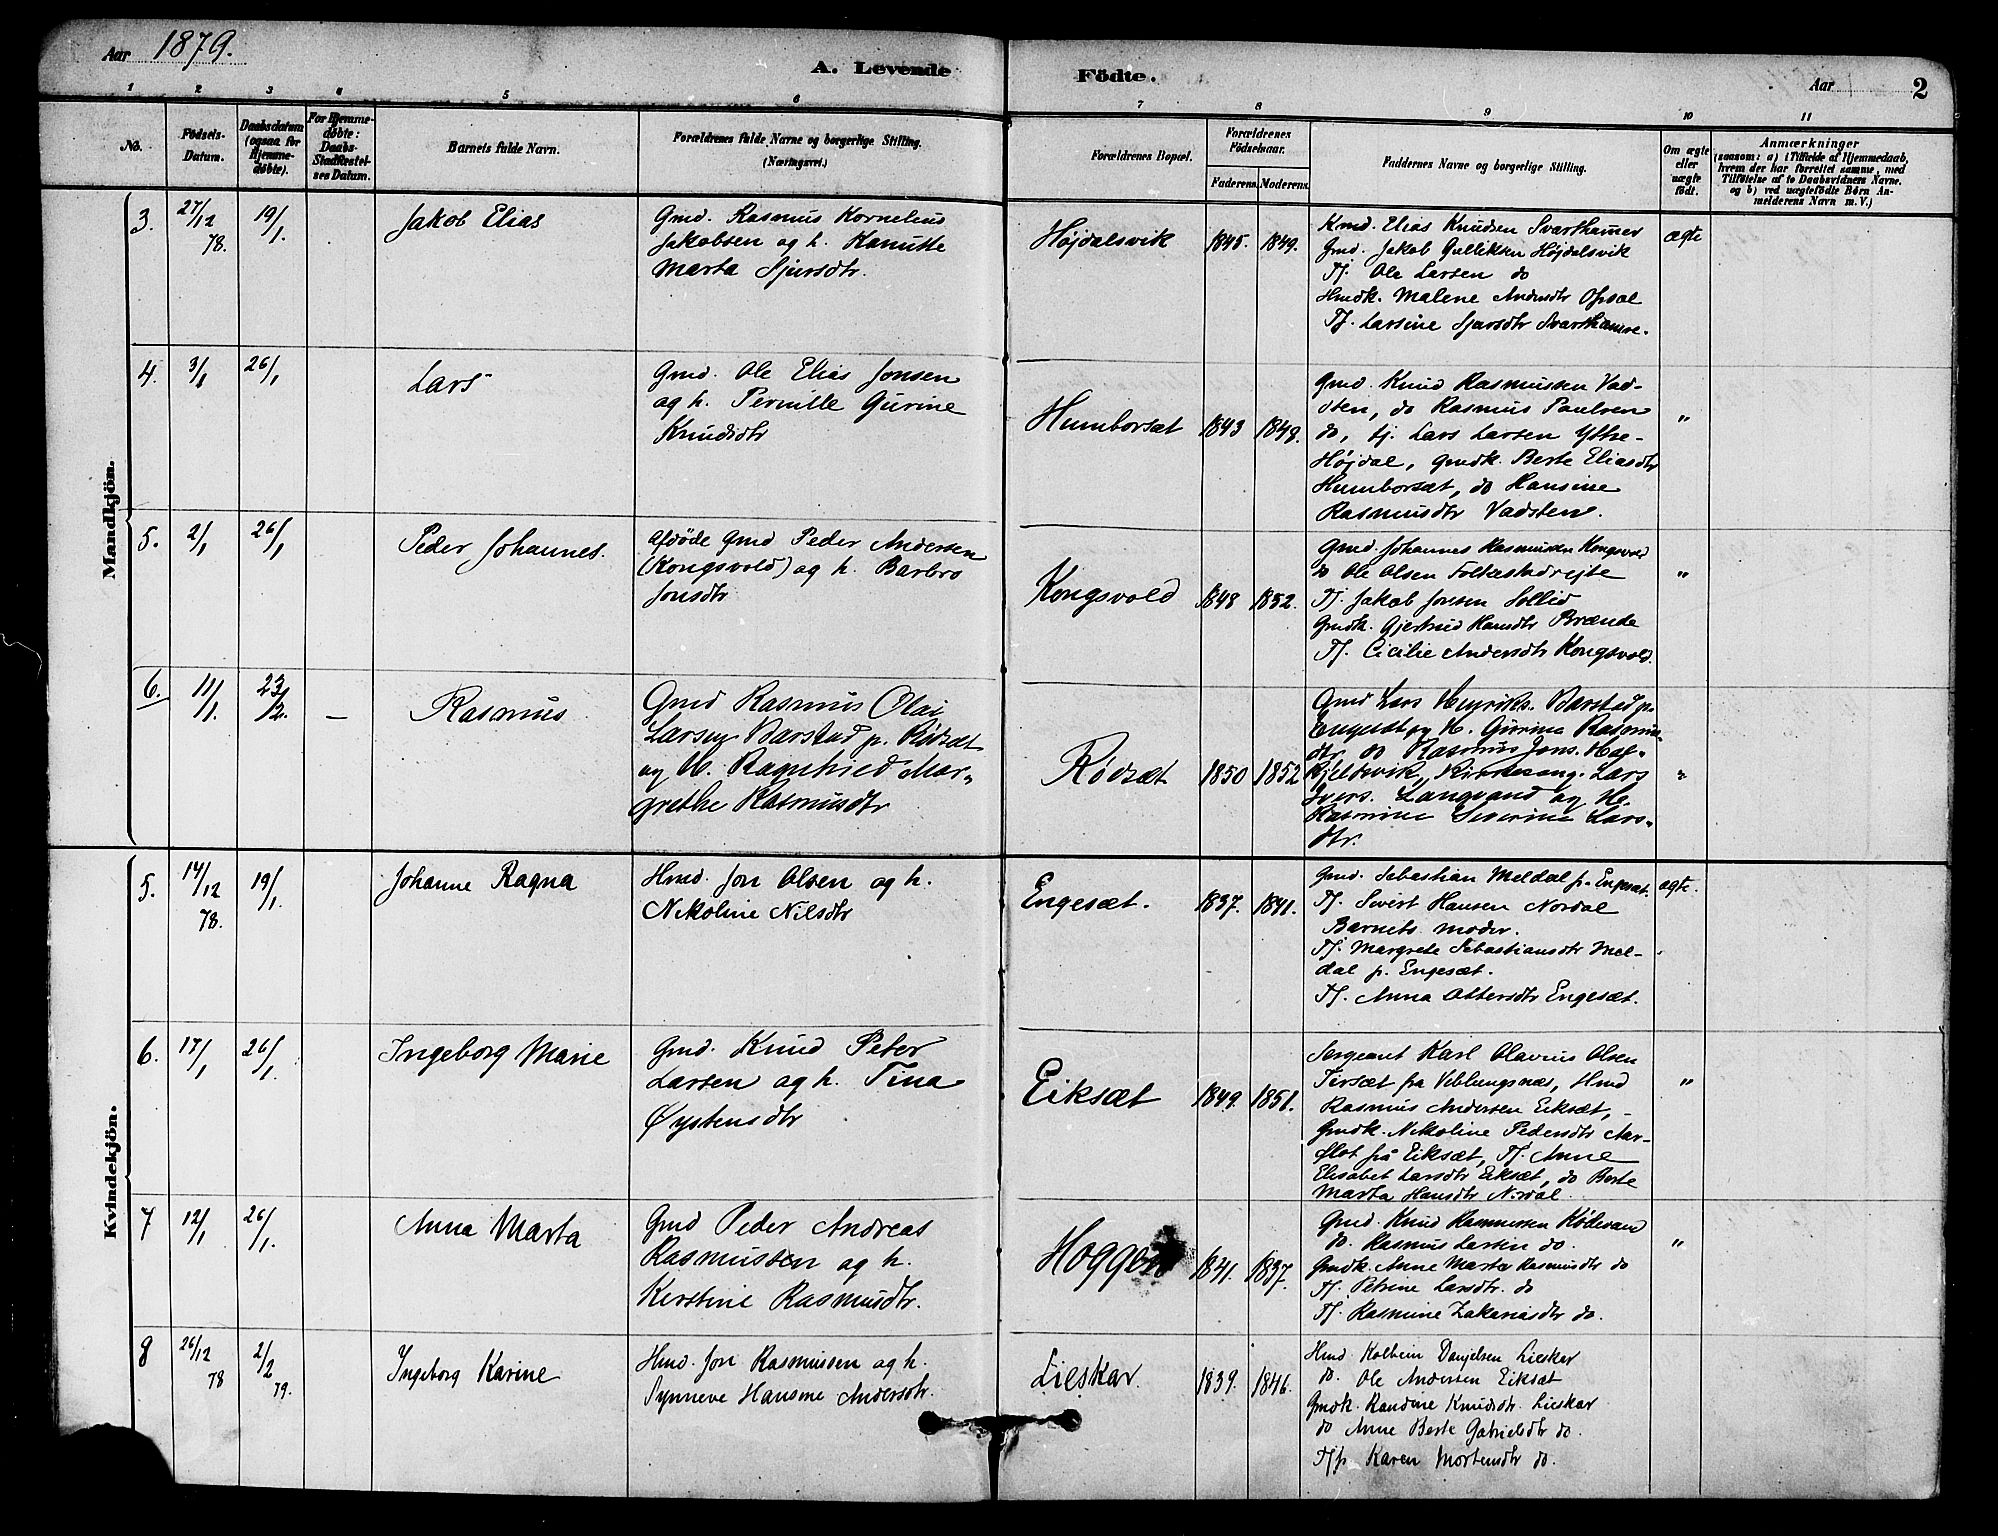 Aar 1879.
A. Levende Födte.
Aar
2
1 2 3 4 5 6 7 8 9 10 11
No.
Födsels-
Datum.
Daabsdatum
(ogsaa for
Hjemme-
døbte).
For Hjemme-
døbte:
Daabs-
Stadfæstel-
ses Datum.
Barnets fulde Navn.
Forældrenes fulde Navne og borgerlige Stilling.
(Næringsvei.)
Forældrenes Bopæl.
Forældrenes
Födselsaar.
Faderens. Moderens.
Faddernes Navne og borgerlige Stilling.
Om ægte
eller
uægte
født.
Anmærkninger
(saasom: a) i Tilfælde af Hjemmedaab,
hvem der har forrettet samme, med
Tilføielse af to Daabsvidners Navne.
og b) ved uægtefødte Børn An-
melderens Navn m. V.)
Mandkjön.
3. 27/12 78. 19/1.
Jakob Elias
Gmd. Rasmus Kornelius
Jakobsen og h. Kanutte
Marta Sjursdtr.
Højdalsvik 1845. 1849.
Kmd. Elias Knudsen Svarthamer
Gmd. Jakob Gulliksen Højdalsvik
Tj. Ole Larsen do
Hmdk. Malene Andersdtr Opsal
Tj. Larsine Sjursdtr Svarthamre.
ægte
4. 3/1 26/1
Lars
Gmd. Ole Elias Jonsen
og h. Pernille Gurine
Knudsdtr
Humborsæt 1843 1849.
Gmd. Knud Rasmussen Vad-
sten, do Rasmus Paulsen
do, tj. Lars Larsen Ytre-
Højdal, gmdk. Berte Eliasdtr
Humborsæt, do Hansine
Rasmusdtr Vadsten.
"
5. 2/1 26/1
Peder Johannes.
Afdøde gmd Peder Andersen
(Kongsvold) og h. Barbro
Jonsdtr
Kongsvold 1848 1852.
Gmd. Johannes Rasmussen Kongsvold
do Ole Olsen Folkestadrejte
Tj. Jakob Jonsen Sollid
Gmdk. Gjertrud Hansdtr Brænde
Tj. Cicilie Andersdtr Kongsvold.
"
6. 11/1. 23/2. –
Rasmus
Gmd Rasmus Olai
Larsen Barstad p. Rødsæt
og H. Ragnhild Mar-
grethe Rasmusdtr
Rødsæt 1850 1852
Gmd Lars Henriks. Barstad p.
Engeset og H. Gurina Rasmus-
dtr. do Rasmus Jons.
Kjeldsvik, Kirkesang. Lars
Ivers. Langvand og H.
Rasmine Severine Lars-
dtr.
"
Kvindekjön.
5. 14/12 78. 19/1.
Johanne Ragna
Hmd. Jon Olsen og h.
Nikoline Nilsdtr
Engesæt. 1837. 1841.
Gmd. Sebastian Meldal p. Engesæt.
Tj. Sivert Hansen Nordal
Barnets moder.
Tj. Margrete Sebastiansdtr Mel-
dal p. Engesæt.
Tj. Anna Ottersdtr Engesæt.
ægte.
6. 17/1 26/1.
Ingeborg Marie
Gmd. Knud Peter
Larsen og h. Tina
Øystensdtr
Eiksæt 1849. 1851.
Sergeant Karl Olavius Olsen
Tersæt fra Veblungsnæs, Hmd
Rasmus Andersen Eiksæt, –
Gmdk. Nikoline Pedersdtr Aar-
flot på Eiksæt, Tj. Anne
Elisabet Larsdtr Eiksæt, do Berte
Marta Hansdtr Nordal.
"
7 12/1 26/1.
Anna Marta
Gmd Peder Andreas
Rasmussen og h.
Kirstine Rasmusdtr.
Hoggen 1841. 1837.
Gmd. Knud Rasmussen Rødesand
do. Rasmus Larsen do.
Gmdk. Anne Marta Rasmusdtr do
Tj. Petrine Larsdtr. do
Tj. Rasmine Zakariasdtr do.
"
8 26/12 78 2/2 79.
Ingeborg Karine
Hmd. Jon Rasmussen og h.
Synneve Hansine Andersdtr.
Lieskar. 1839. 1846.
Hmd Kolbein Danjelsen Lieskar
do. Ole Andersen Eiksæt
Gmdk. Randine Knudsdtr. Lieskar
do Anne Berte Gabrielsdtr do.
Tjp Karen Mortensdtr do.